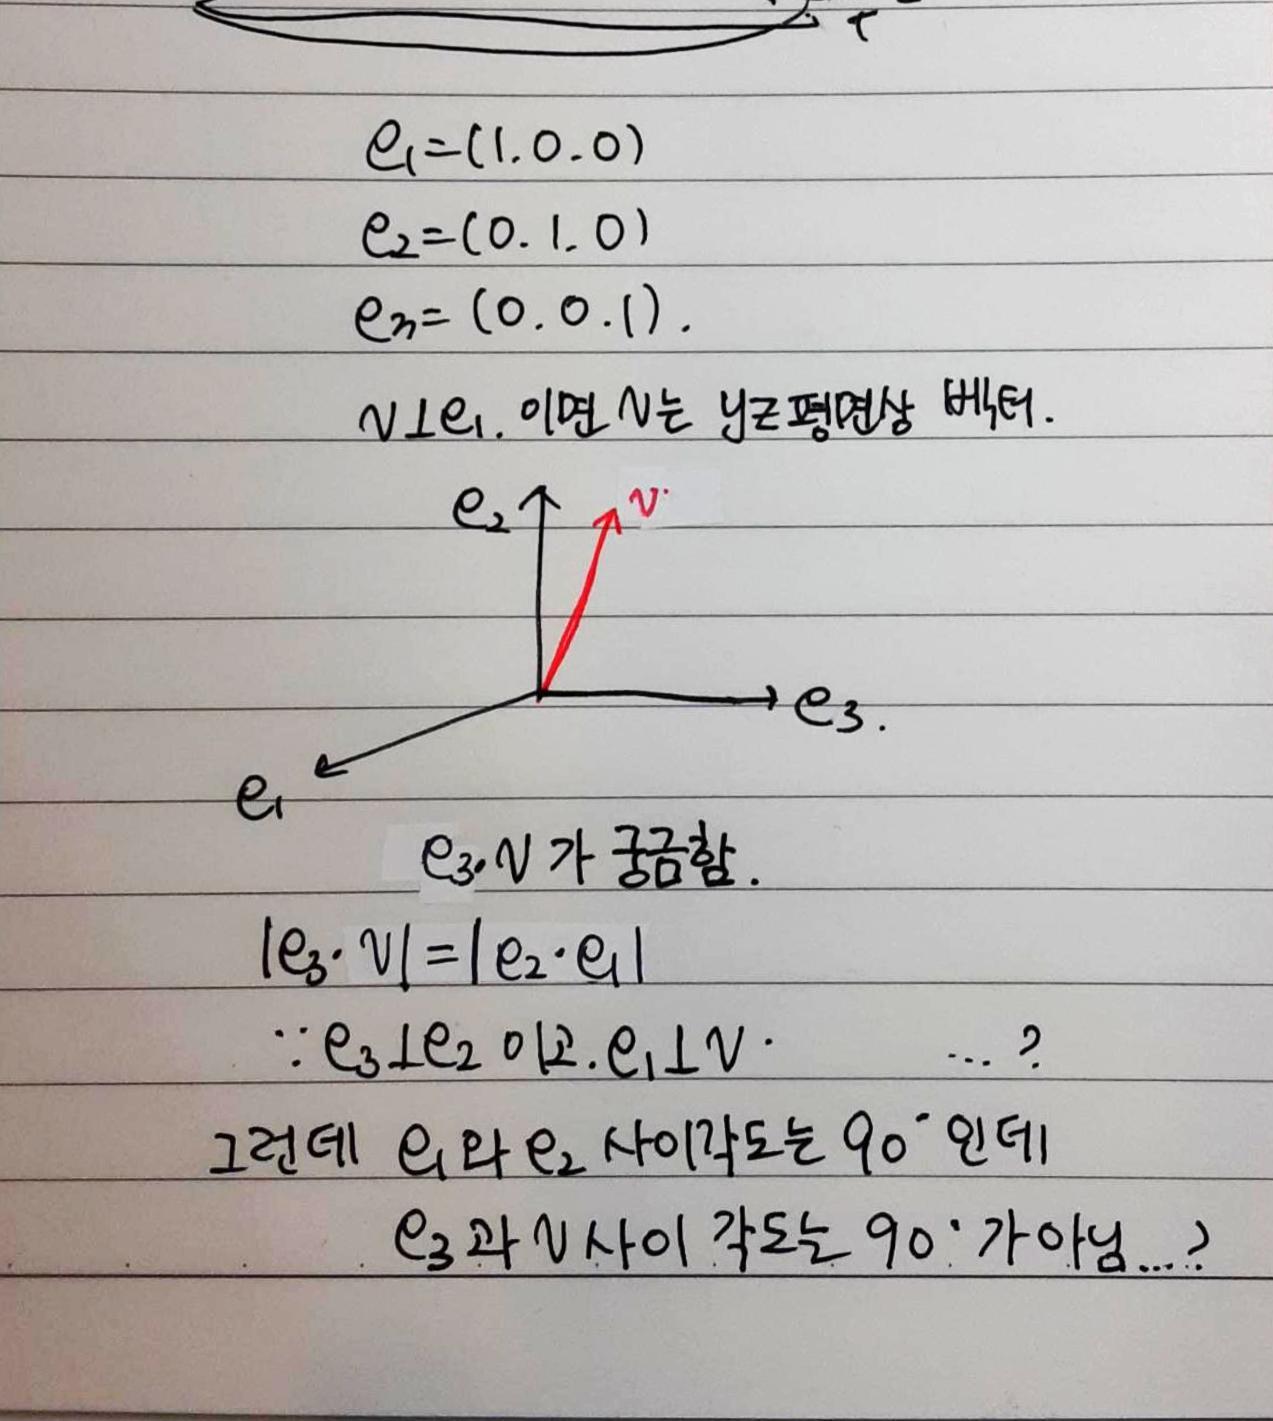 e₁=(1.0.0)
e₂=(0.1.0)
e₃=(0.0.1).
v⊥e₁.이면 v는 yz평면상 벡터.
e₂
v.
e₃.
e₁
e₃.v가 궁금함.
|e₃.v|=|e₂.e₁|
∵e₃⊥e₂이고.e₁⊥v. ...?
그런데 e₁와 e₂ 사이각도는 90°인데
e₃과 v사이 각도는 90°가아님...?